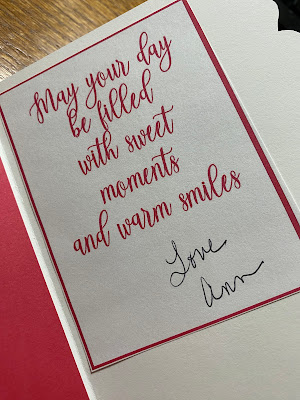 May your day
be filled
with sweet
moments
and warm smiles
Love
Ann